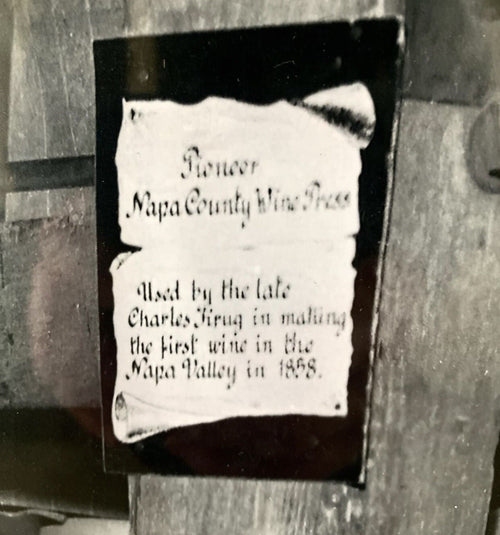 Pioneer
Napa County Wine Press
Used by the late
Charles Krug in making
the first wine in the
Napa Valley in 1858.